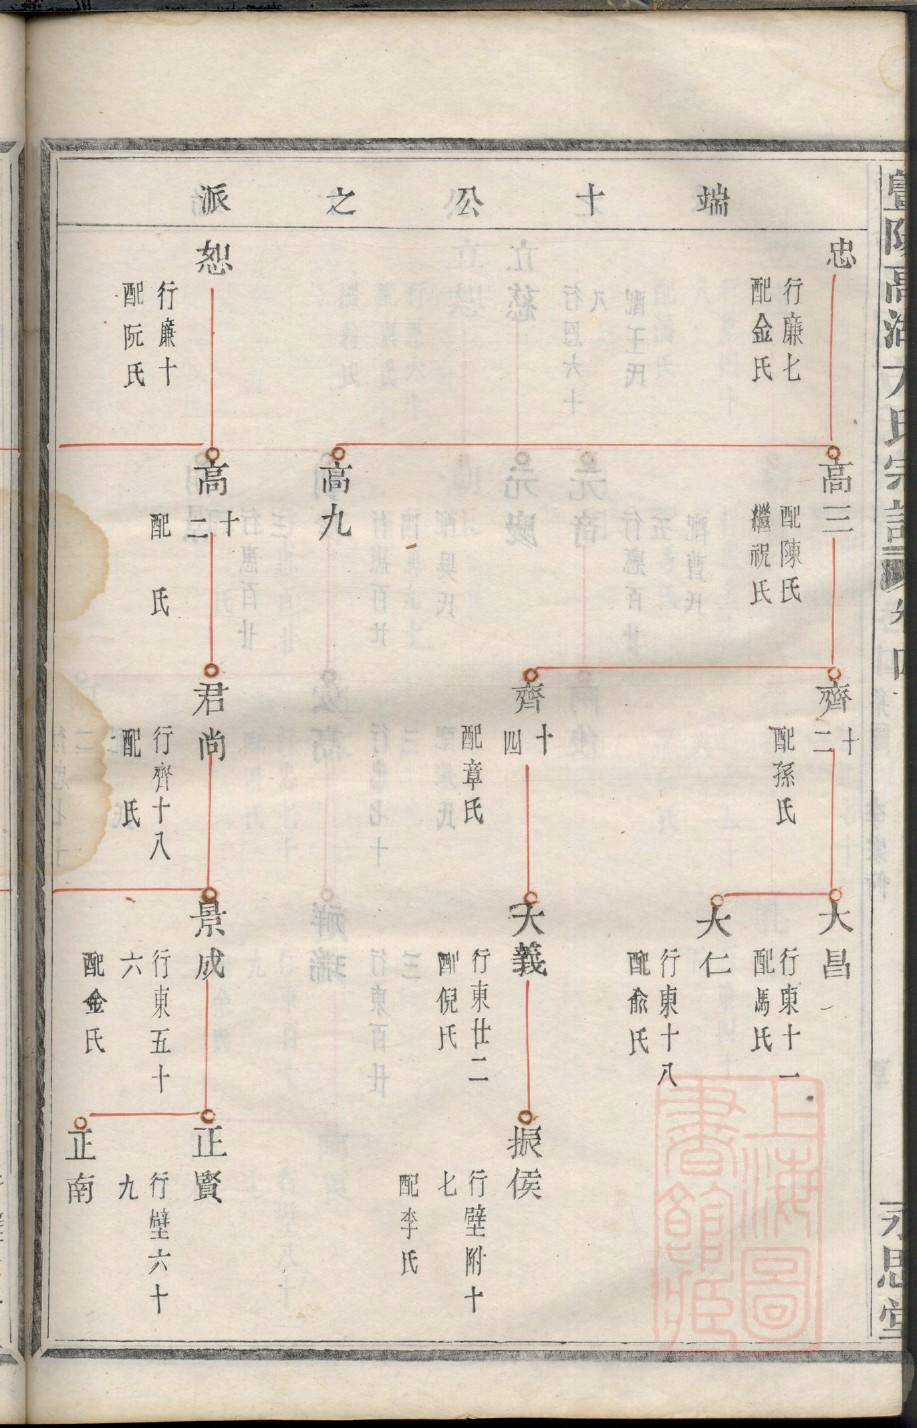 端十公之派
忠
行廉七
配金氏
恕
行廉十
配阮氏
高三
配陳氏
繼祝氏
高九
高十二
配 氏
齊十二
配孫氏
齊十四
配章氏
君尚
行齊十八
配 氏
大昌
行東十一
配馮氏
大仁
行東十八
配俞氏
大義
行東廿二
配倪氏
景成
行東五十六
配金氏
振侯
行壁附十七
配李氏
正賢
行壁六十九
正南
永思堂
上海圖書館臧